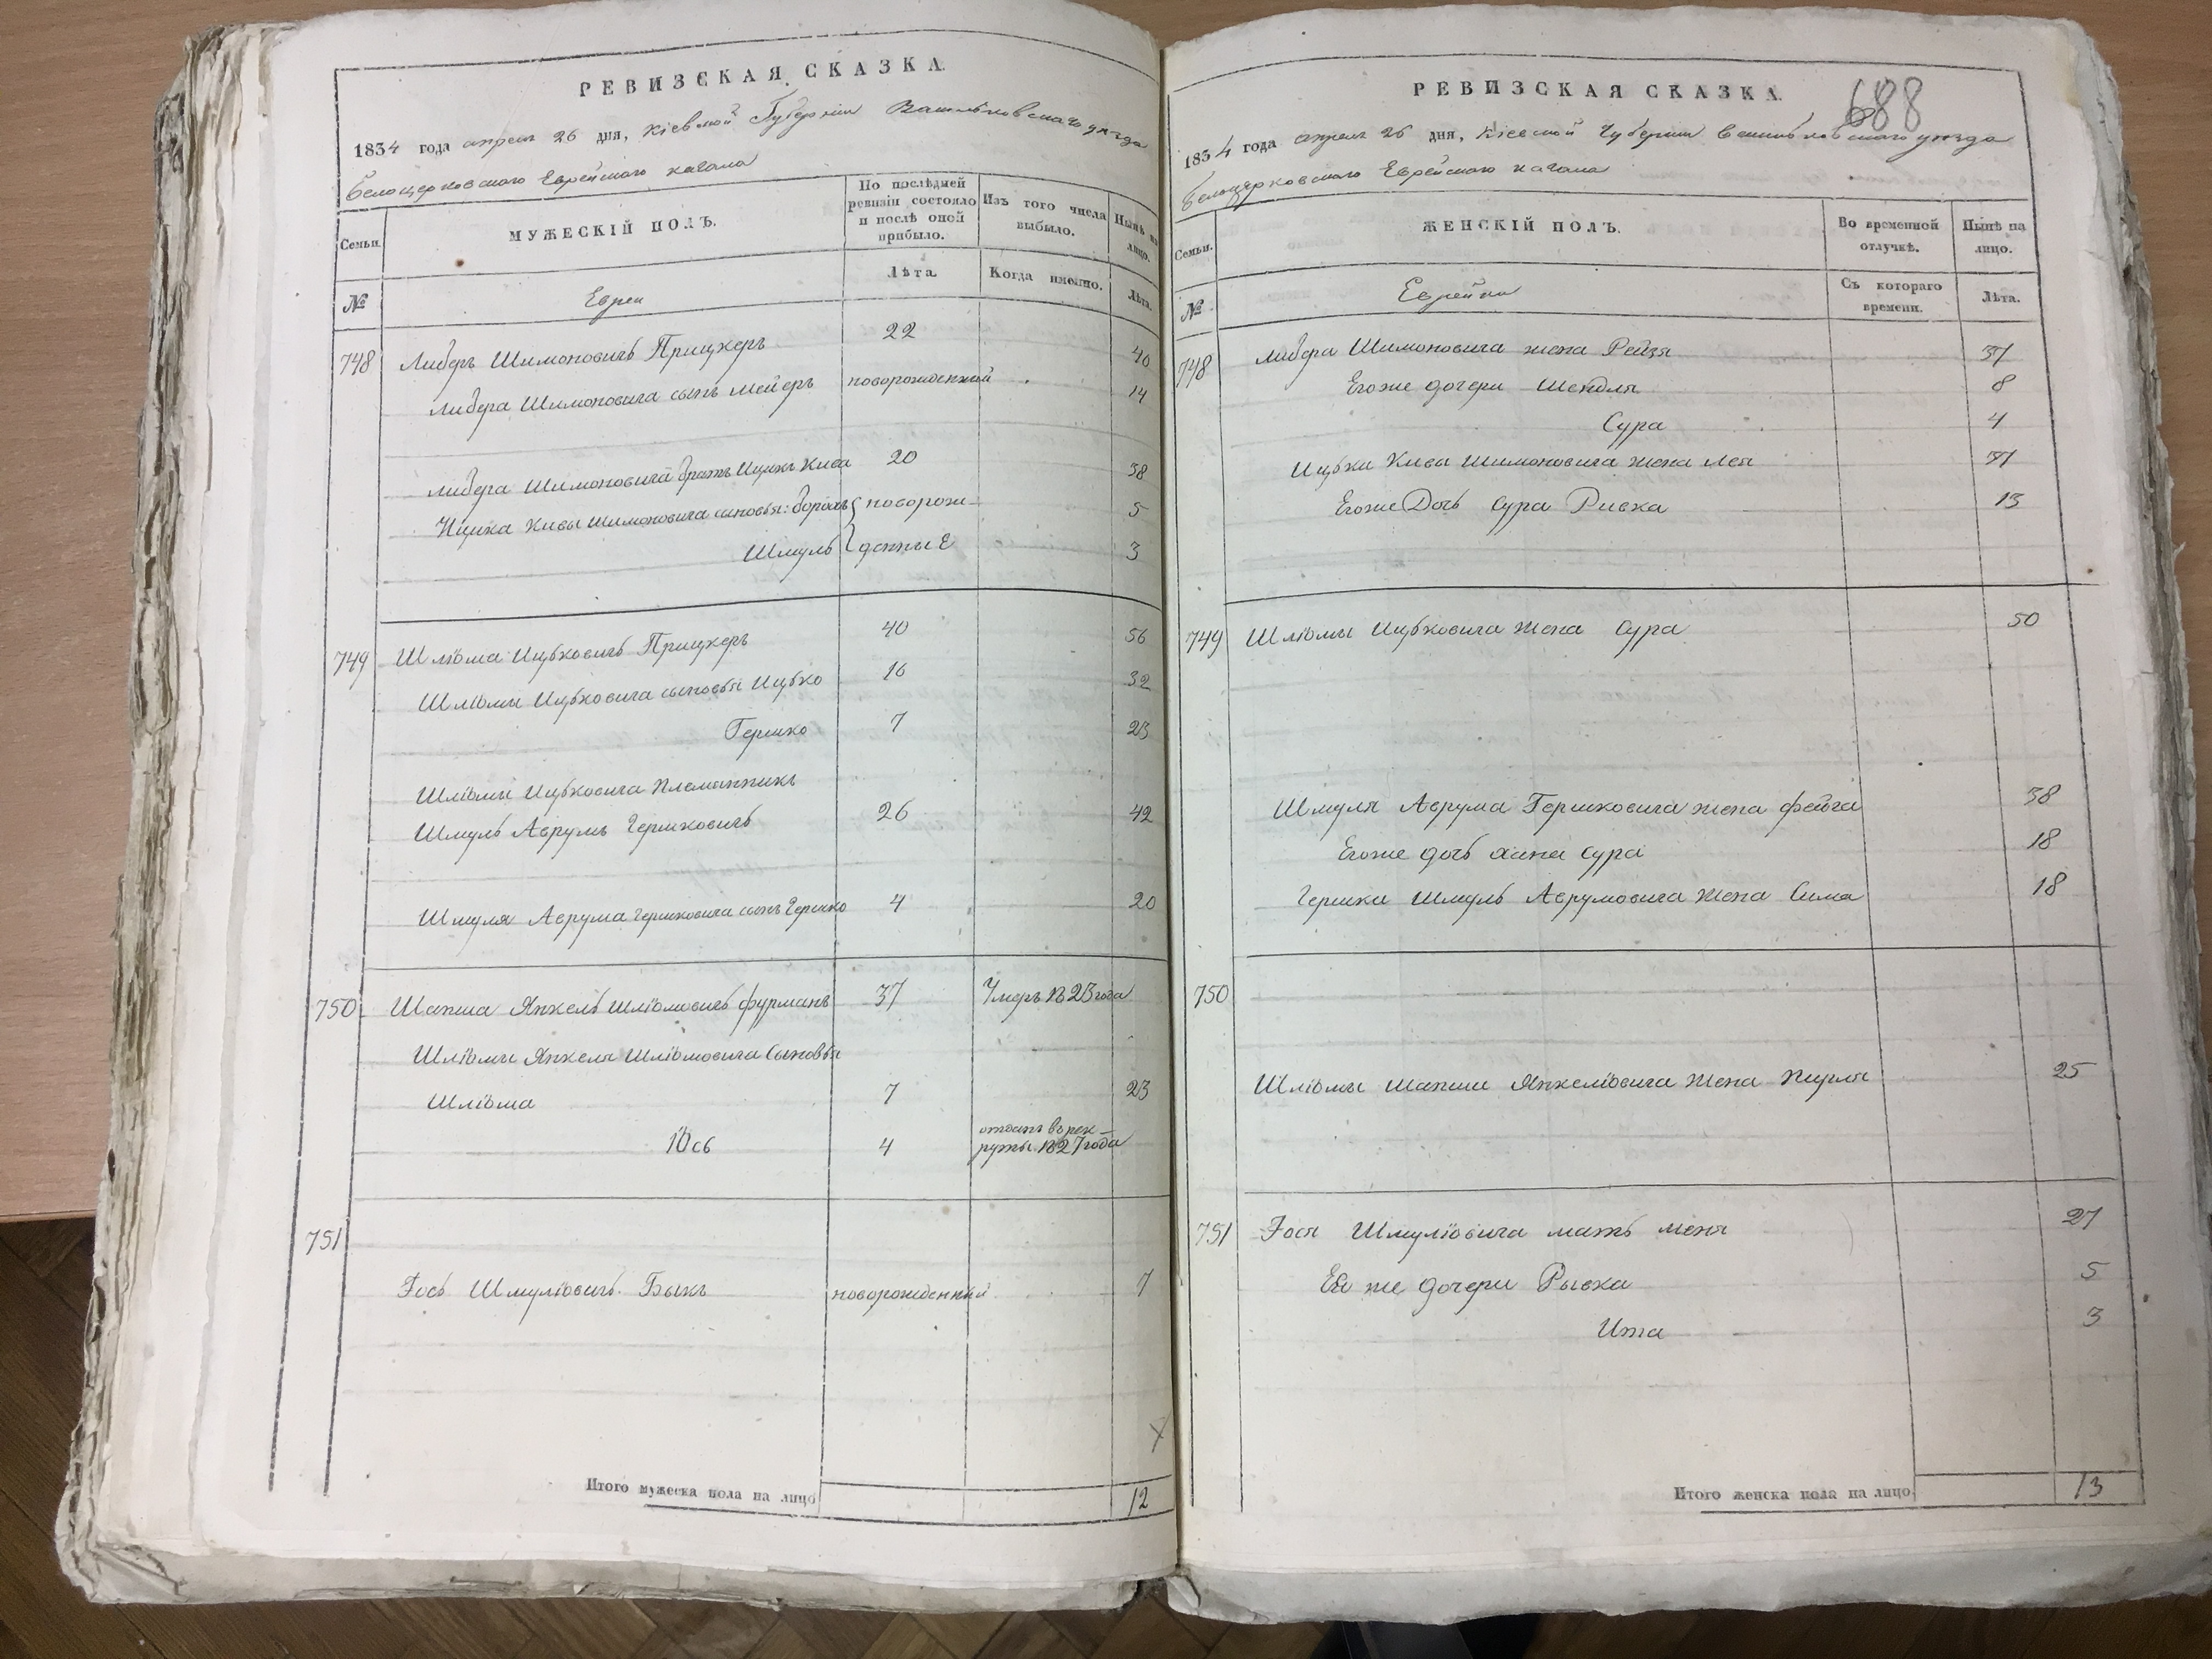 РЕВИЗСКАЯ СКАЗКА.
1834 года апреля 26 дня, Кіевской Губерніи Васильковскаго уѣзда
Белоцерковскаго Еврейскаго кагала
Семьи.
МУЖЕСКІЙ ПОЛЪ.
По послѣдней ревизіи состояло и послѣ оной прибыло.
Изъ того числа выбыло.
Нынѣ на лицо.
№
Евреи
Лѣта.
Когда именно.
Лѣта.
748 Либеръ Шимоновичъ Прицкеръ 22 40
Либера Шимоновича сынъ Мейеръ новорожденный 14
Либера Шимоновича братъ Ицикъ Кива 20 38
Ицика Кивы Шимоновича сыновья: Борохъ новорож- 5
Шмуль денные 3
749 Шліома Ицьковичъ Прицкеръ 40 56
Шліомы Ицьковича сыновья Ицько 16 32
Гершко 7 23
Шліомы Ицьковича племянникъ
Шмуль Аврумъ Гершковичъ 26 42
Шмуля Аврума Гершковича сынъ Гершко 4 20
750 Шапша Янкель Шліомовичъ фурманъ 37 Умеръ 1823 года
Шліомы Янкеля Шліомовича сыновья
Шліома 7 23
Юсь 4 отданъ в рек-
руты 1827 года
751
Іось Шмуліовичъ Быкъ новорожденный 7
Итого мужеска пола на лицо 12
688
РЕВИЗСКАЯ СКАЗКА.
1834 года апреля 26 дня, Кіевской Губерніи Васильковскаго уѣзда
Белоцерковскаго Еврейскаго кагала
Семьи.
ЖЕНСКІЙ ПОЛЪ.
Во временной отлучкѣ.
Нынѣ на лицо.
№
Еврейки
Съ котораго времени.
Лѣта.
748 Либера Шимоновича жена Рейзя 37
Егоже дочери Шейндля 8
Сура 4
Ицька Кивы Шимоновича жена Лея 37
Егоже Дочь Сура Ривка 13
749 Шліомы Ицьковича жена Сура 50
Шмуля Аврума Гершковича жена фейга 38
Егоже дочь Хана Сура 18
Гершка Шмуль Аврумовича жена Сима 18
750
Шліомы Шапши Янкеліовича жена Перля 25
751 Іося Шмуліовича мать Меня 27
Ея же дочери Рывка 5
Ита 3
Итого женска пола на лицо. 13